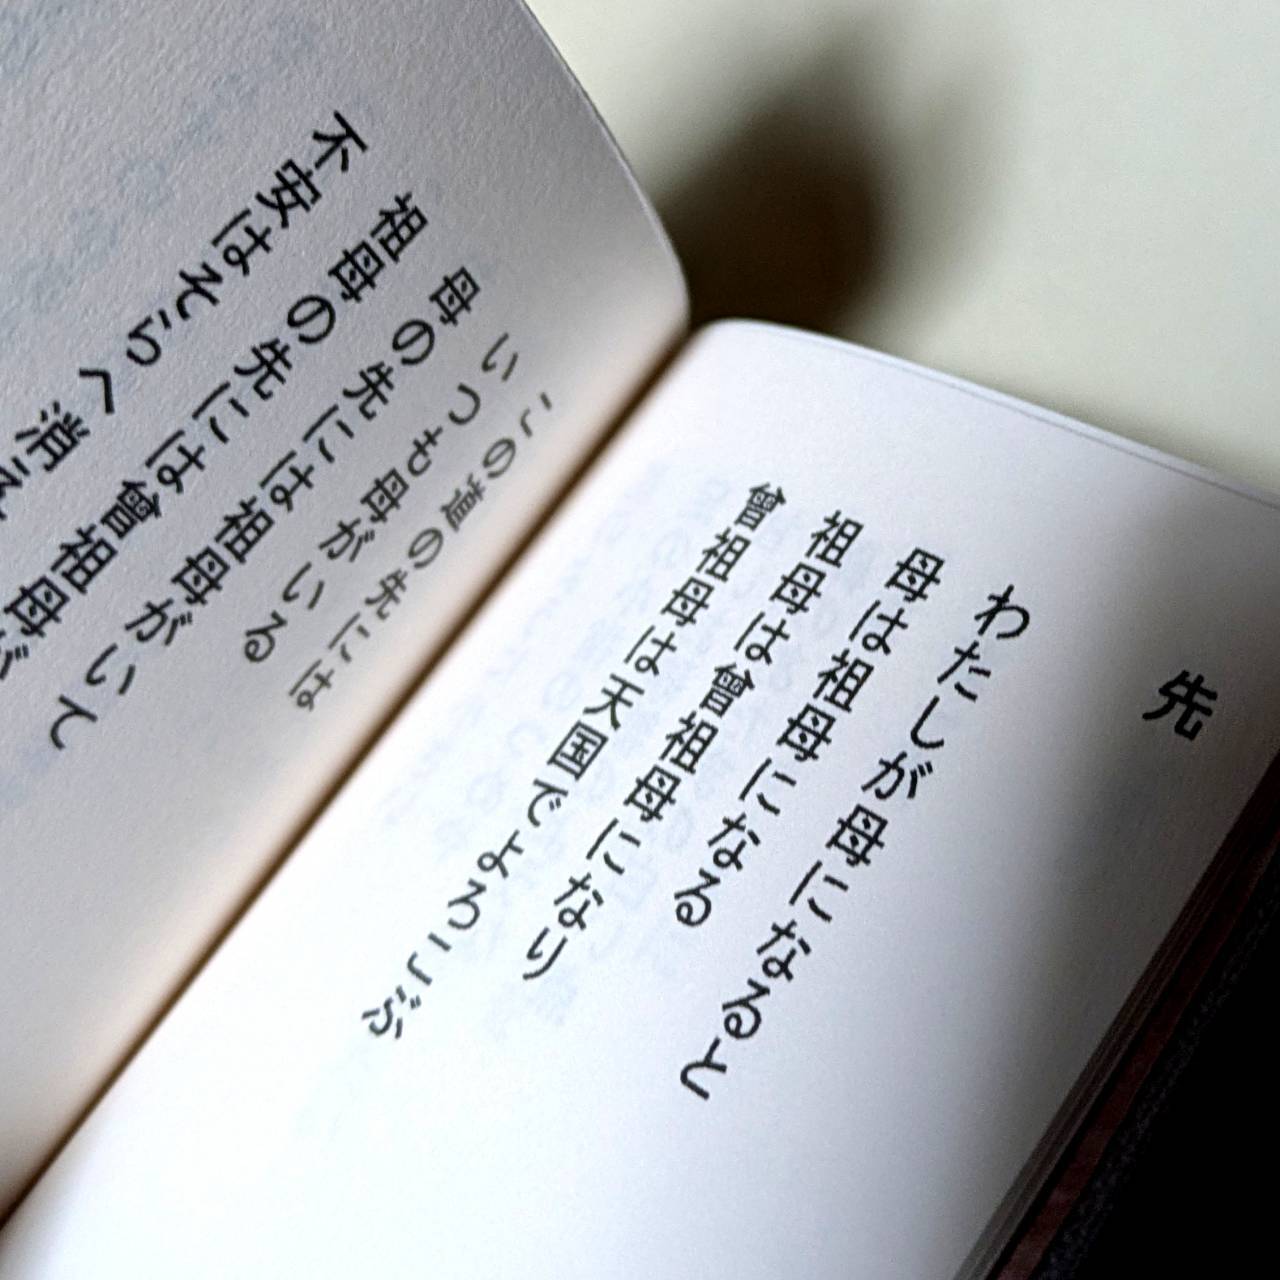 先
わたしが母になると
母は祖母になる
祖母は曾祖母になり
曾祖母は天国でよろこぶ
この道の先には
いつも母がいる
母の先には祖母がいて
祖母の先には曾祖母が
不安はそらへ消え